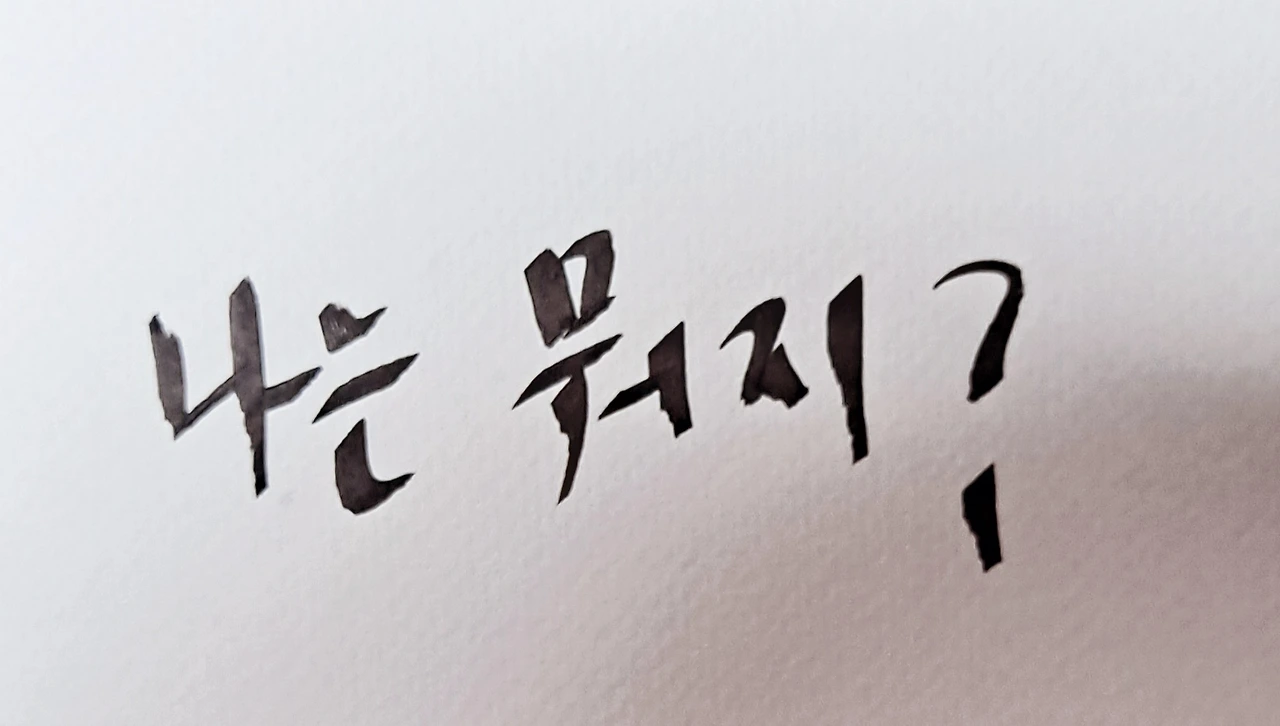 나는 뭐지?